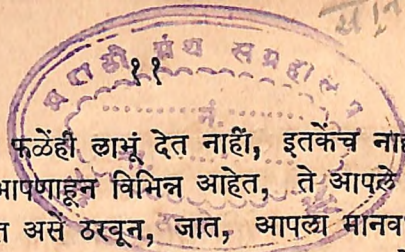 मराठी ग्रंथ संग्रहालय
११
नं.
फळेंही लाभूं देत नाहीं, इतकेंच नाह
आपणाहून विभिन्न आहेत, ते आपले
त असें ठरवून, जात, आपला मानव